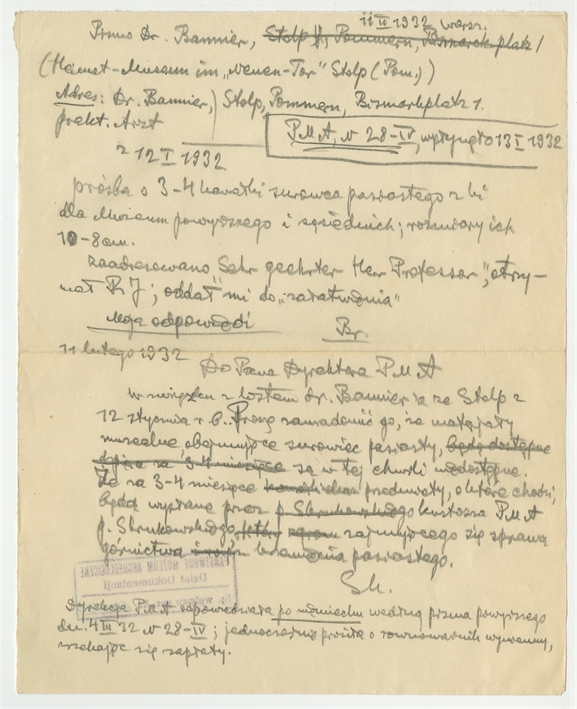 11 IV 1932 Warsz.
Pismo Dr. Bannier, Stolp i/, Pommern, Bismarckplatz 1
(Heimat-Museum im „Neuen-Tor" Stolp (Pom.)
Adres: Dr. Bannier, Stolp, Pommern, Bismarkplatz 1.
prakt. Arzt
P.M.A, N 28-IV, wpłynęło 13 I 1932
z 12 I 1932
prośba o 3-4 kawałki surowca pasiastego z
dla Muzeum powyższego i sąsiednich; rozmiary ich
10-8 cm.
zaadresowano Sehr geehrter Herr Professor", otrzy-
mał R J; oddał mi do „załatwienia"
Moja odpowiedź Br.
11 lutego 1932
Do Pana Dyrektora P M A
w związku z listem dr. Bannier'a ze Stolp z
12 stycznia r. b. Proszę zawiadomić go, że materjały
muzealne obejmujące surowiec pasiasty, będą dostępne
dopiero za 3-4 miesiące są w tej chwili niedostępne.
Że za 3-4 miesiące przedmioty, o które chodzi,
będą wysłane przez p. Skrukowskiego kustosza P M A
p. Skrukowskiego, zajmującego się sprawą
górnictwa krzemienia pasiastego.
Sk.
PAŃSTWOWE MUZEUM ARCHEOLOGICZNE
Dział Dokumentacji
Dyrekcja P.M.A odpowiedziała po niemiecku według pisma powyższego
dn. 4 III 32 N 28-IV; jednocześnie prosiła o równoważnik wymienny,
zrzekając się zapłaty.